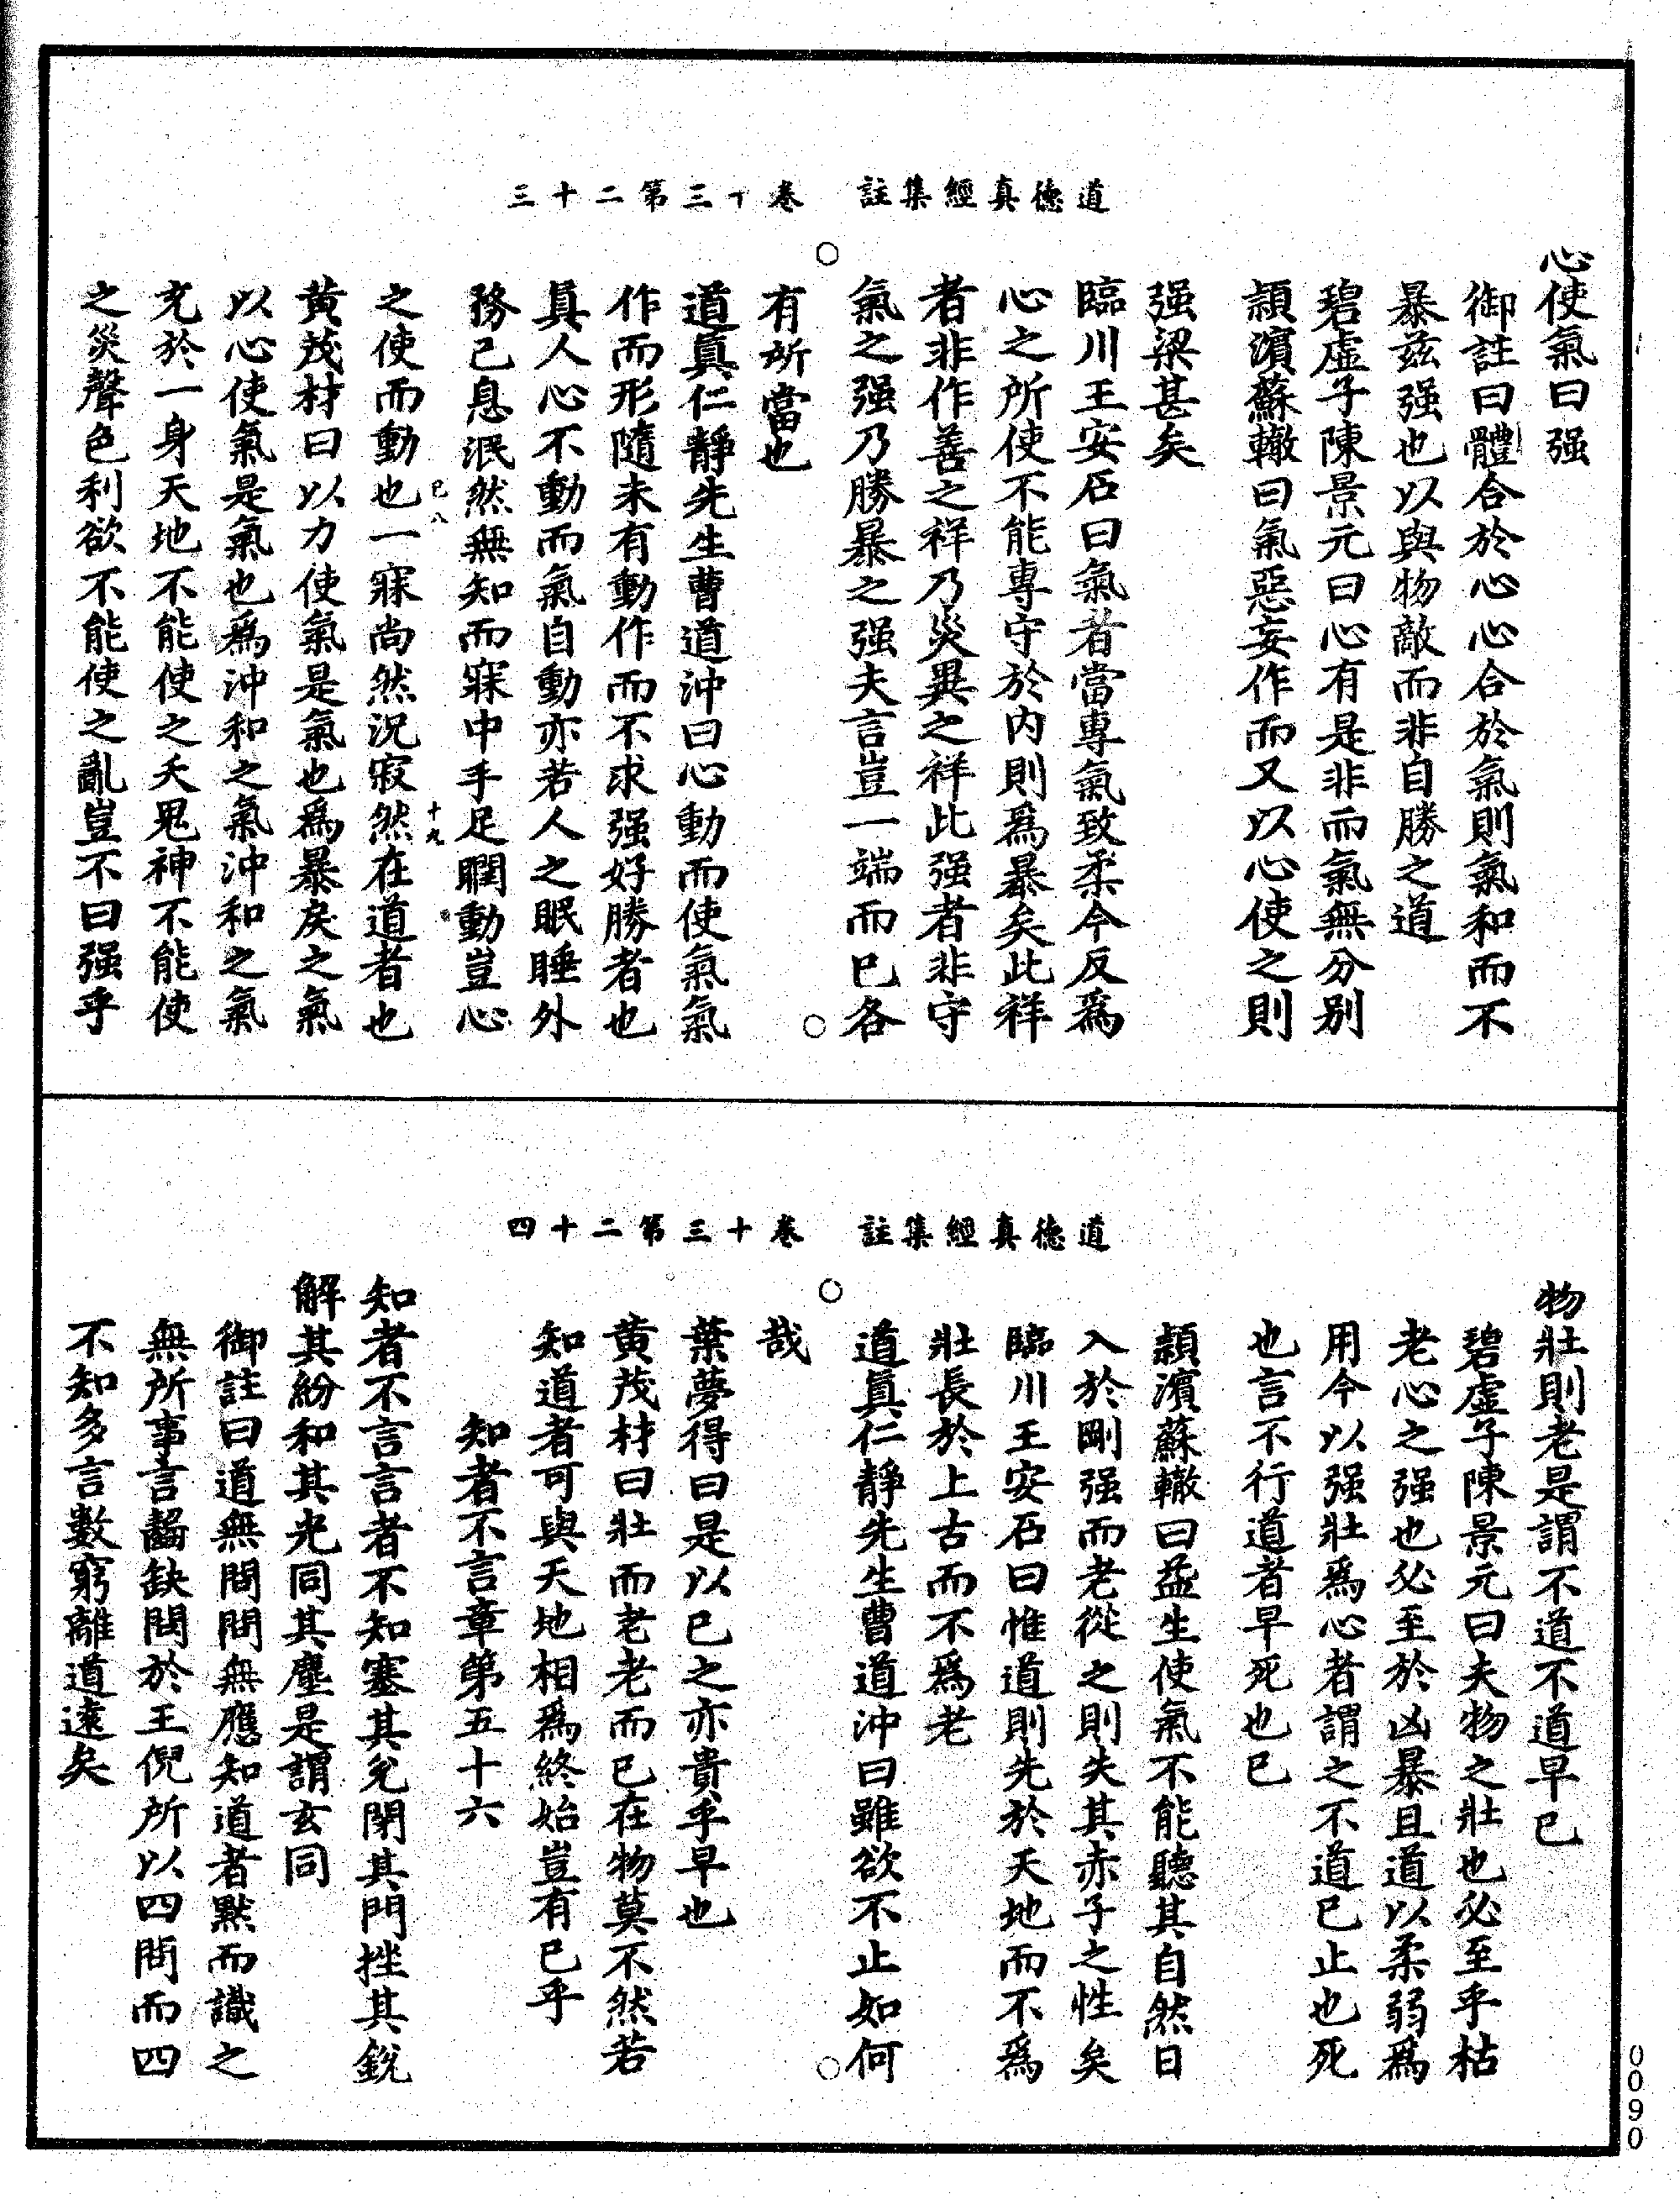 道德真經集註　卷十三第二十三
心使氣曰强
御註曰體合於心心合於氣則氣和而不
暴茲强也以與物敵而非自勝之道
碧虛子陳景元曰心有是非而氣無分别
潁濱蘇轍曰氣惡妄作而又以心使之則
强梁甚矣
臨川王安石曰氣者當專氣致柔今反爲
心之所使不能專守於内則爲暴矣此祥
者非作善之祥乃災異之祥此强者非守
氣之强乃勝暴之强夫言豈一端而已各
有所當也
道真仁靜先生曹道沖曰心動而使氣氣
作而形隨未有動作而不求强好勝者也
真人心不動而氣自動亦若人之眠睡外
務已息泯然無知而寐中手足瞤動豈心
之使而動也一寐尚然況寂然在道者也
巳八 十九
黄茂材曰以力使氣是氣也爲暴戾之氣
以心使氣是氣也爲沖和之氣沖和之氣
充於一身天地不能使之夭鬼神不能使
之災聲色利欲不能使之亂豈不曰强乎
道德真經集註　卷十三第二十四
物壯則老是謂不道不道早已
碧虛子陳景元曰夫物之壯也必至乎枯
老心之强也必至於凶暴且道以柔弱爲
用今以强壯爲心者謂之不道已止也死
也言不行道者早死也已
潁濱蘇轍曰益生使氣不能聽其自然日
入於剛强而老從之則失其赤子之性矣
臨川王安石曰惟道則先於天地而不爲
壯長於上古而不爲老
道真仁靜先生曹道沖曰雖欲不止如何
哉
葉夢得曰是以已之亦貴乎早也
黄茂材曰壯而老老而已在物莫不然若
知道者可與天地相爲終始豈有已乎
知者不言章第五十六
知者不言言者不知塞其兌閉其門挫其銳
解其紛和其光同其塵是謂玄同
御註曰道無問問無應知道者默而識之
無所事言齧缺問於王倪所以四問而四
不知多言數窮離道遠矣
0090